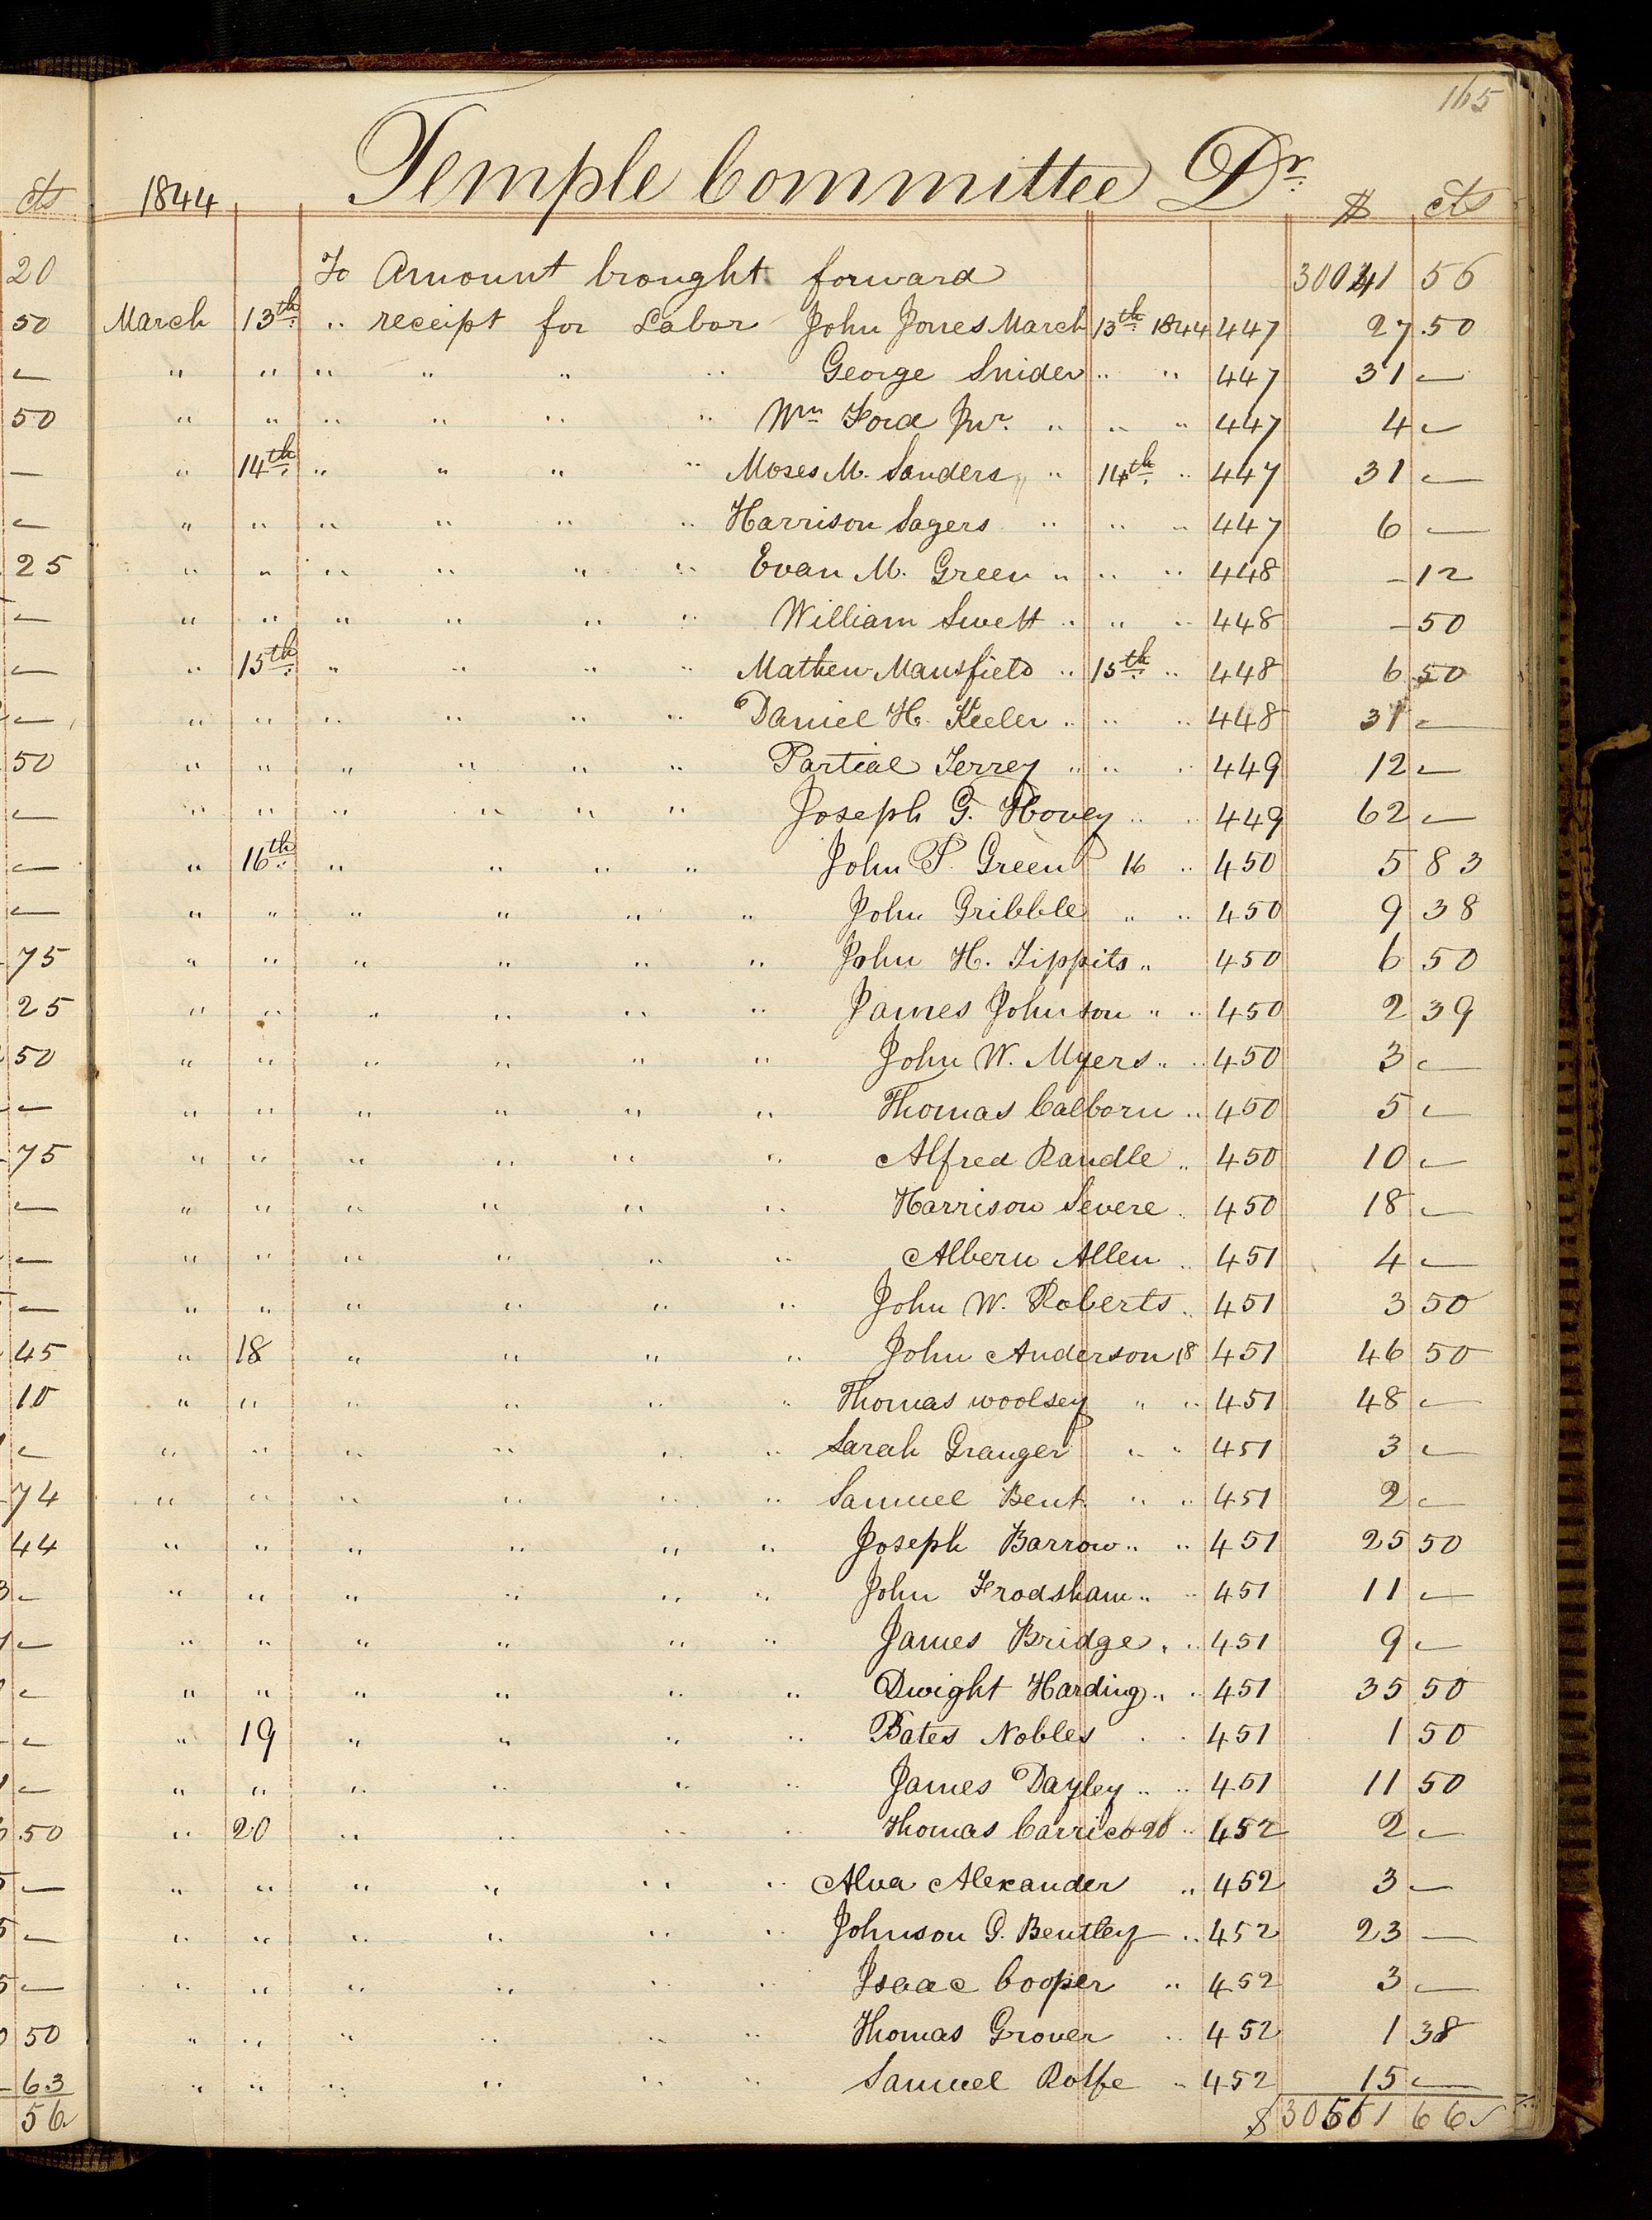 165
1844 Temple Committee Dr. $ cts
To Amount brought forward 30041 56
March 13th. " receipt for Labor John Jones March 13th. 1844 447 27.50
" " " " " " George Snider " " 447 31 —
" " " " " " Wm Ford Jur. " " " 447 4 —
" 14th. " " " " Moses M. Sanders " 14th. " 447 31 —
" " " " " " Harrison Sagers " " " 447 6 —
" " " " " " Evan M. Green " " " 448 – 12
" " " " " " William Swett " " " 448 – 50
" 15th. " " " " Mathew Mansfield " 15th. " 448 6 50
" " " " " " Daniel H. Keeler " " " 448 31 —
" " " " " " Partial Terrey " " " 449 12 —
" " " " " " Joseph G. Hovey " " 449 62 —
" 16th. " " " " John P. Green 16 " 450 5 83
" " " " " " John Gribble " " 450 9 38
" " " " " " John H. Tippits " 450 6 50
" " " " " " James Johnson " " 450 2 39
" " " " " " John W. Myers " " 450 3 —
" " " " " " Thomas Calborn " 450 5 —
" " " " " " Alfred Randle " 450 10 —
" " " " " " Harrison Severe " 450 18 —
" " " " " " Albern Allen " 451 4 —
" " " " " " John W. Roberts " 451 3 50
" 18 " " " " John Anderson 18 451 46 50
" " " " " " Thomas woolsey " " 451 48 —
" " " " " " Sarah Granger " " 451 3 —
" " " " " " Samuel Bent " " 451 2 —
" " " " " " Joseph Barrow " " 451 25 50
" " " " " " John Frodsham " " 451 11 —
" " " " " " James Bridge " " 451 9 —
" " " " " " Dwight Harding " " 451 35 50
" 19 " " " " Bates Nobles " " 451 1 50
" " " " " " James Dayley " " 451 11 50
" 20 " " " " Thomas Carrico 20 " 452 2 —
" " " " " " Alva Alexander " 452 3 —
" " " " " " Johnson G. Bentley " 452 23 —
" " " " " " Isaac Cooper " 452 3 —
" " " " " " Thomas Grover " 452 1 38
" " " " " " Samuel Rolfe " 452 15 —
$ 30561 66